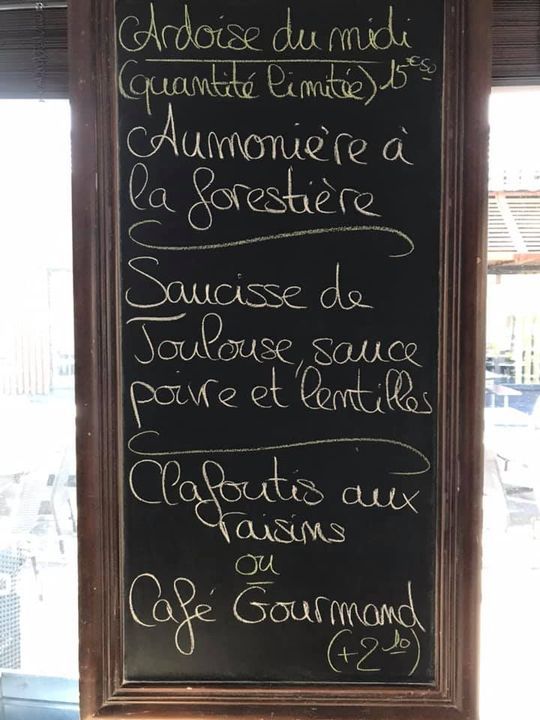 Ardoise du midi
(quantité limitée) 15€50
Aumonière à
la forestière
Saucisse de
Toulouse, sauce
poivre et lentilles
Clafoutis aux
raisins
ou
Café Gourmand
(+210)